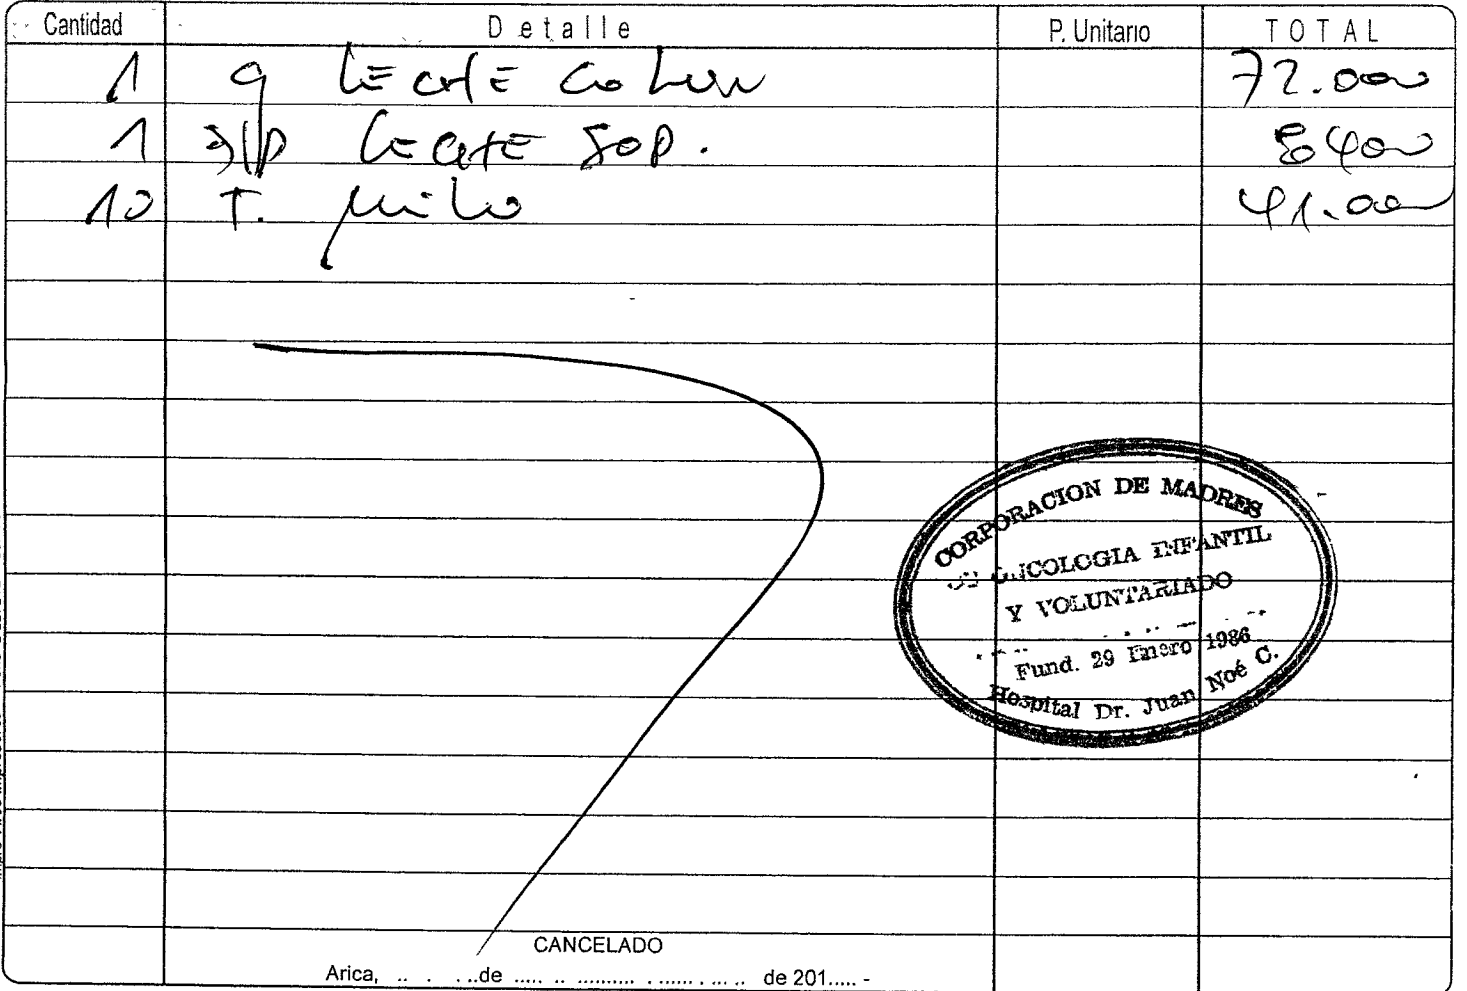 Cantidad Detalle P. Unitario TOTAL
1 q LECHE Colun 72.000
1 LECHE SOP. 8400
10 T. Milo 41.000
CORPORACION DE MADRES
ONCOLOGIA INFANTIL
Y VOLUNTARIADO
Fund. 29 Enero 1986
Hospital Dr. Juan Noé C.
CANCELADO
Arica, .. . . ..de ..... .. .......... . ...... . ... .. de 201..... -